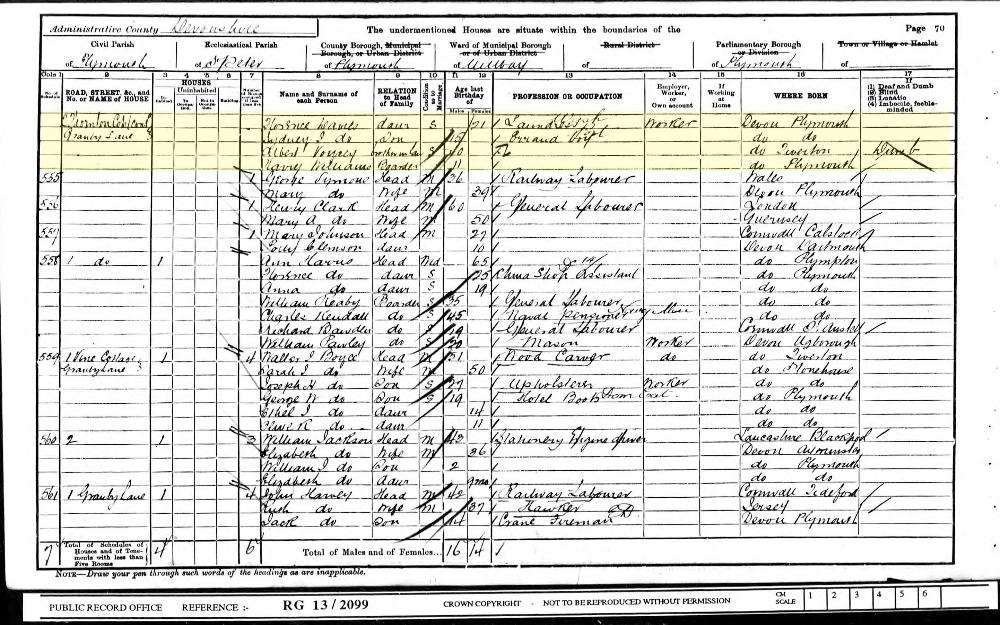 Administrative County Devonshire The undermentioned Houses are situate within the boundaries of the Page 70
Civil Parish Ecclesiastical Parish County Borough, Municipal Borough, or Urban District Ward of Municipal Borough or of Urban District Rural District Parliamentary Borough or Division Town or Village or Hamlet
of Plymouth of St Peter of Plymouth of Millbay of of Plymouth of
Cols 1 2 3 4 5 6 7 8 9 10 11 12 13 14 15 16 17
ROAD, STREET, &c., and No. or NAME of HOUSE HOUSES Uninhabited Name and Surname of each Person RELATION to Head of Family Condition as to Marriage Age last Birthday of Males Females PROFESSION OR OCCUPATION Employer, Worker, or Own account If Working at Home WHERE BORN (1) Deaf and Dumb (2) Blind (3) Lunatic (4) Imbecile, feeble-minded
Florence daur S 21 Worker Devon Plymouth
Granby Lane Sydney J do Son 15 Errand boy do do
Albert brother in law S 40 do Tiverton Dumb
Harry Williams Boarder 11 do Plymouth
555 1 George Symons Head M 36 Railway Labourer Wales
Mary do Wife M 39 Devon Plymouth
556 1 Henry Clark Head M 60 General Labourer London
Mary A do Wife M 50 Guernsey
557 1 Mary Johnson Head M 27 Cornwall Calstock
daur 10 Devon Dartmouth
558 1 do 1 Ann Harris Head Wid 65 do Plympton
Florence do daur S 25 China Shop Assistant do Plymouth
Anna do daur S 19 do do
William Boarder S 35 General Labourer do do
Charles Kendall do S 45 Naval Pensioner do do
Richard do S 19 General Labourer Cornwall St Austell
William do S 20 Mason Worker Devon Ugborough
559 1 Vine Cottage 1 4 Walter J Boyce Head M 51 Wood Carver do do Tiverton
Granby Lane Sarah J do Wife M 50 do Stonehouse
Joseph H do Son S 27 Upholsterer Worker do do
George W do Son S 19 Hotel Boots do Plymouth
Ethel J do daur 14 do do
do daur 11 do do
560 2 1 3 William Jackson Head M 42 Stationery Engine driver Lancashire Blackpool
Elizabeth do Wife M 36 Devon Axminster
William J do Son 2 do Plymouth
Elizabeth do daur 9mo do do
561 1 Granby Lane 1 4 John Harvey Head M 42 Railway Labourer Cornwall Tideford
Ruth do Wife M 37 Hawker Jersey
Jack do Son 14 Crane Fireman Devon Plymouth
7 Total of Schedules of Houses and of Tenements with less than Five Rooms 4 6 Total of Males and of Females... 16 14
NOTE—Draw your pen through such words of the headings as are inapplicable.
PUBLIC RECORD OFFICE REFERENCE :- RG 13/2099 CROWN COPYRIGHT - NOT TO BE REPRODUCED WITHOUT PERMISSION CM SCALE 1 2 3 4 5 6